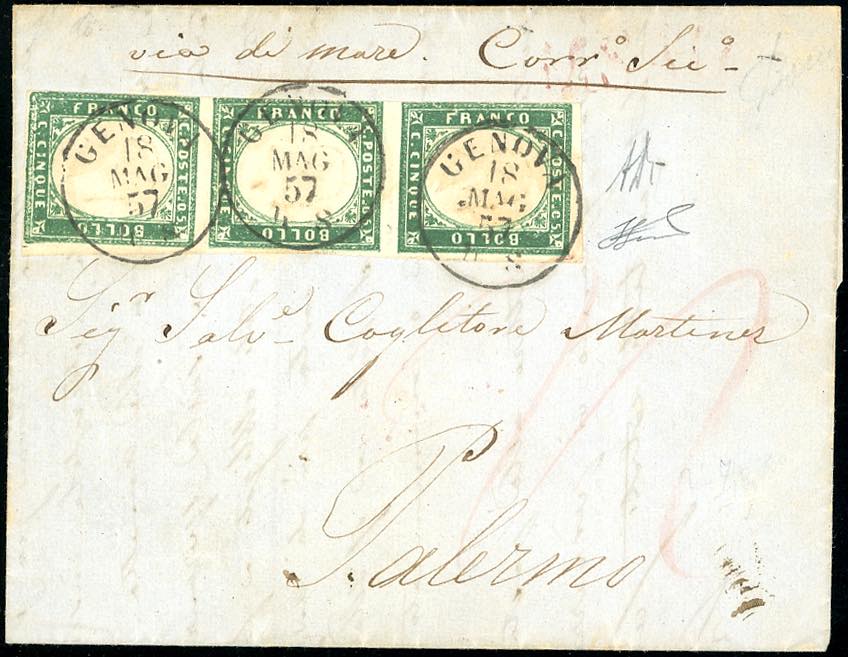 via di mare. Corr.º Sic.º
FRANCO C. POSTE.C5 BOLLO C. CINQUE
FRANCO C. POSTE.C5 BOLLO C. CINQUE
FRANCO C. POSTE.C5 BOLLO C. CINQUE
GENOVA
18
MAG
57
GENOVA
18
MAG
57
GENOVA
18
MAG
57
Sig.r Salv.e Coglitore Martines
Palermo